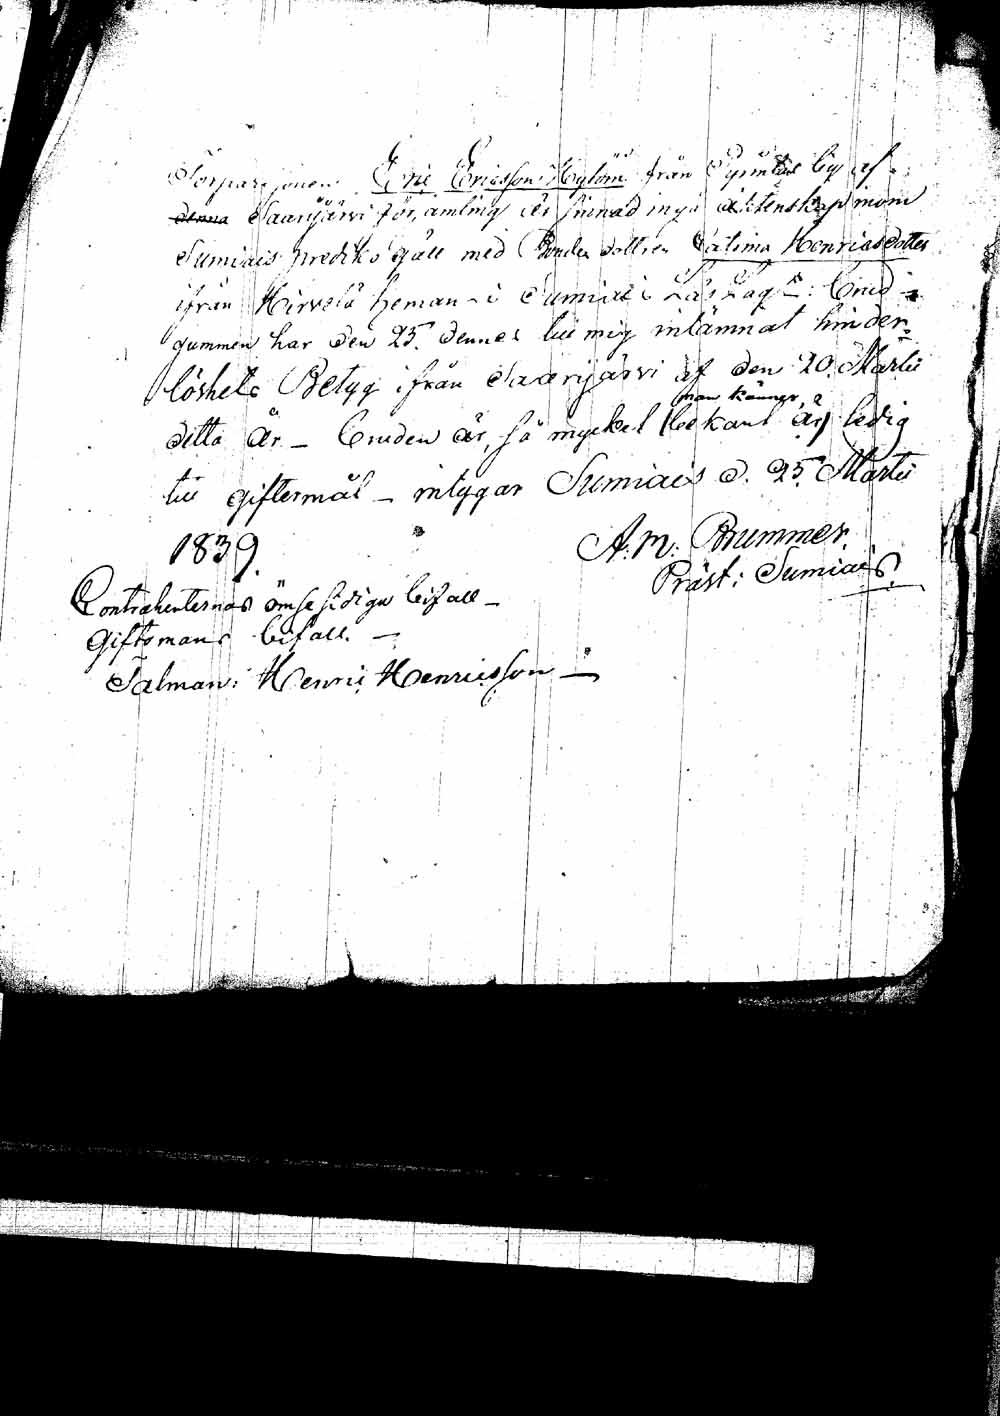 Torparesonen Eric Ericsson Hytöin från by af
denna Saarijärvi församling är sinnad ingå äktenskap inom
Sumiais prediko gäll med Bonde dottren Catrina Henricsdotter
ifrån Hirvelä heman i Sumiais Brud-
gummen har den 25. dennes till mig inlämnat hinder-
löshets Betyg ifrån Saarijärvi af den 20. Martii
detta år - Bruden är, så mycket bekant är, ledig
man känner,
till giftermål - intygar Sumiais d. 25. Martii
1839. A. M. Brummer.
Präst: Sumiais.
Contrahenternas ömsesidiga bifall -
Giftomans bifall. -
Talman: Henric Henricsson -